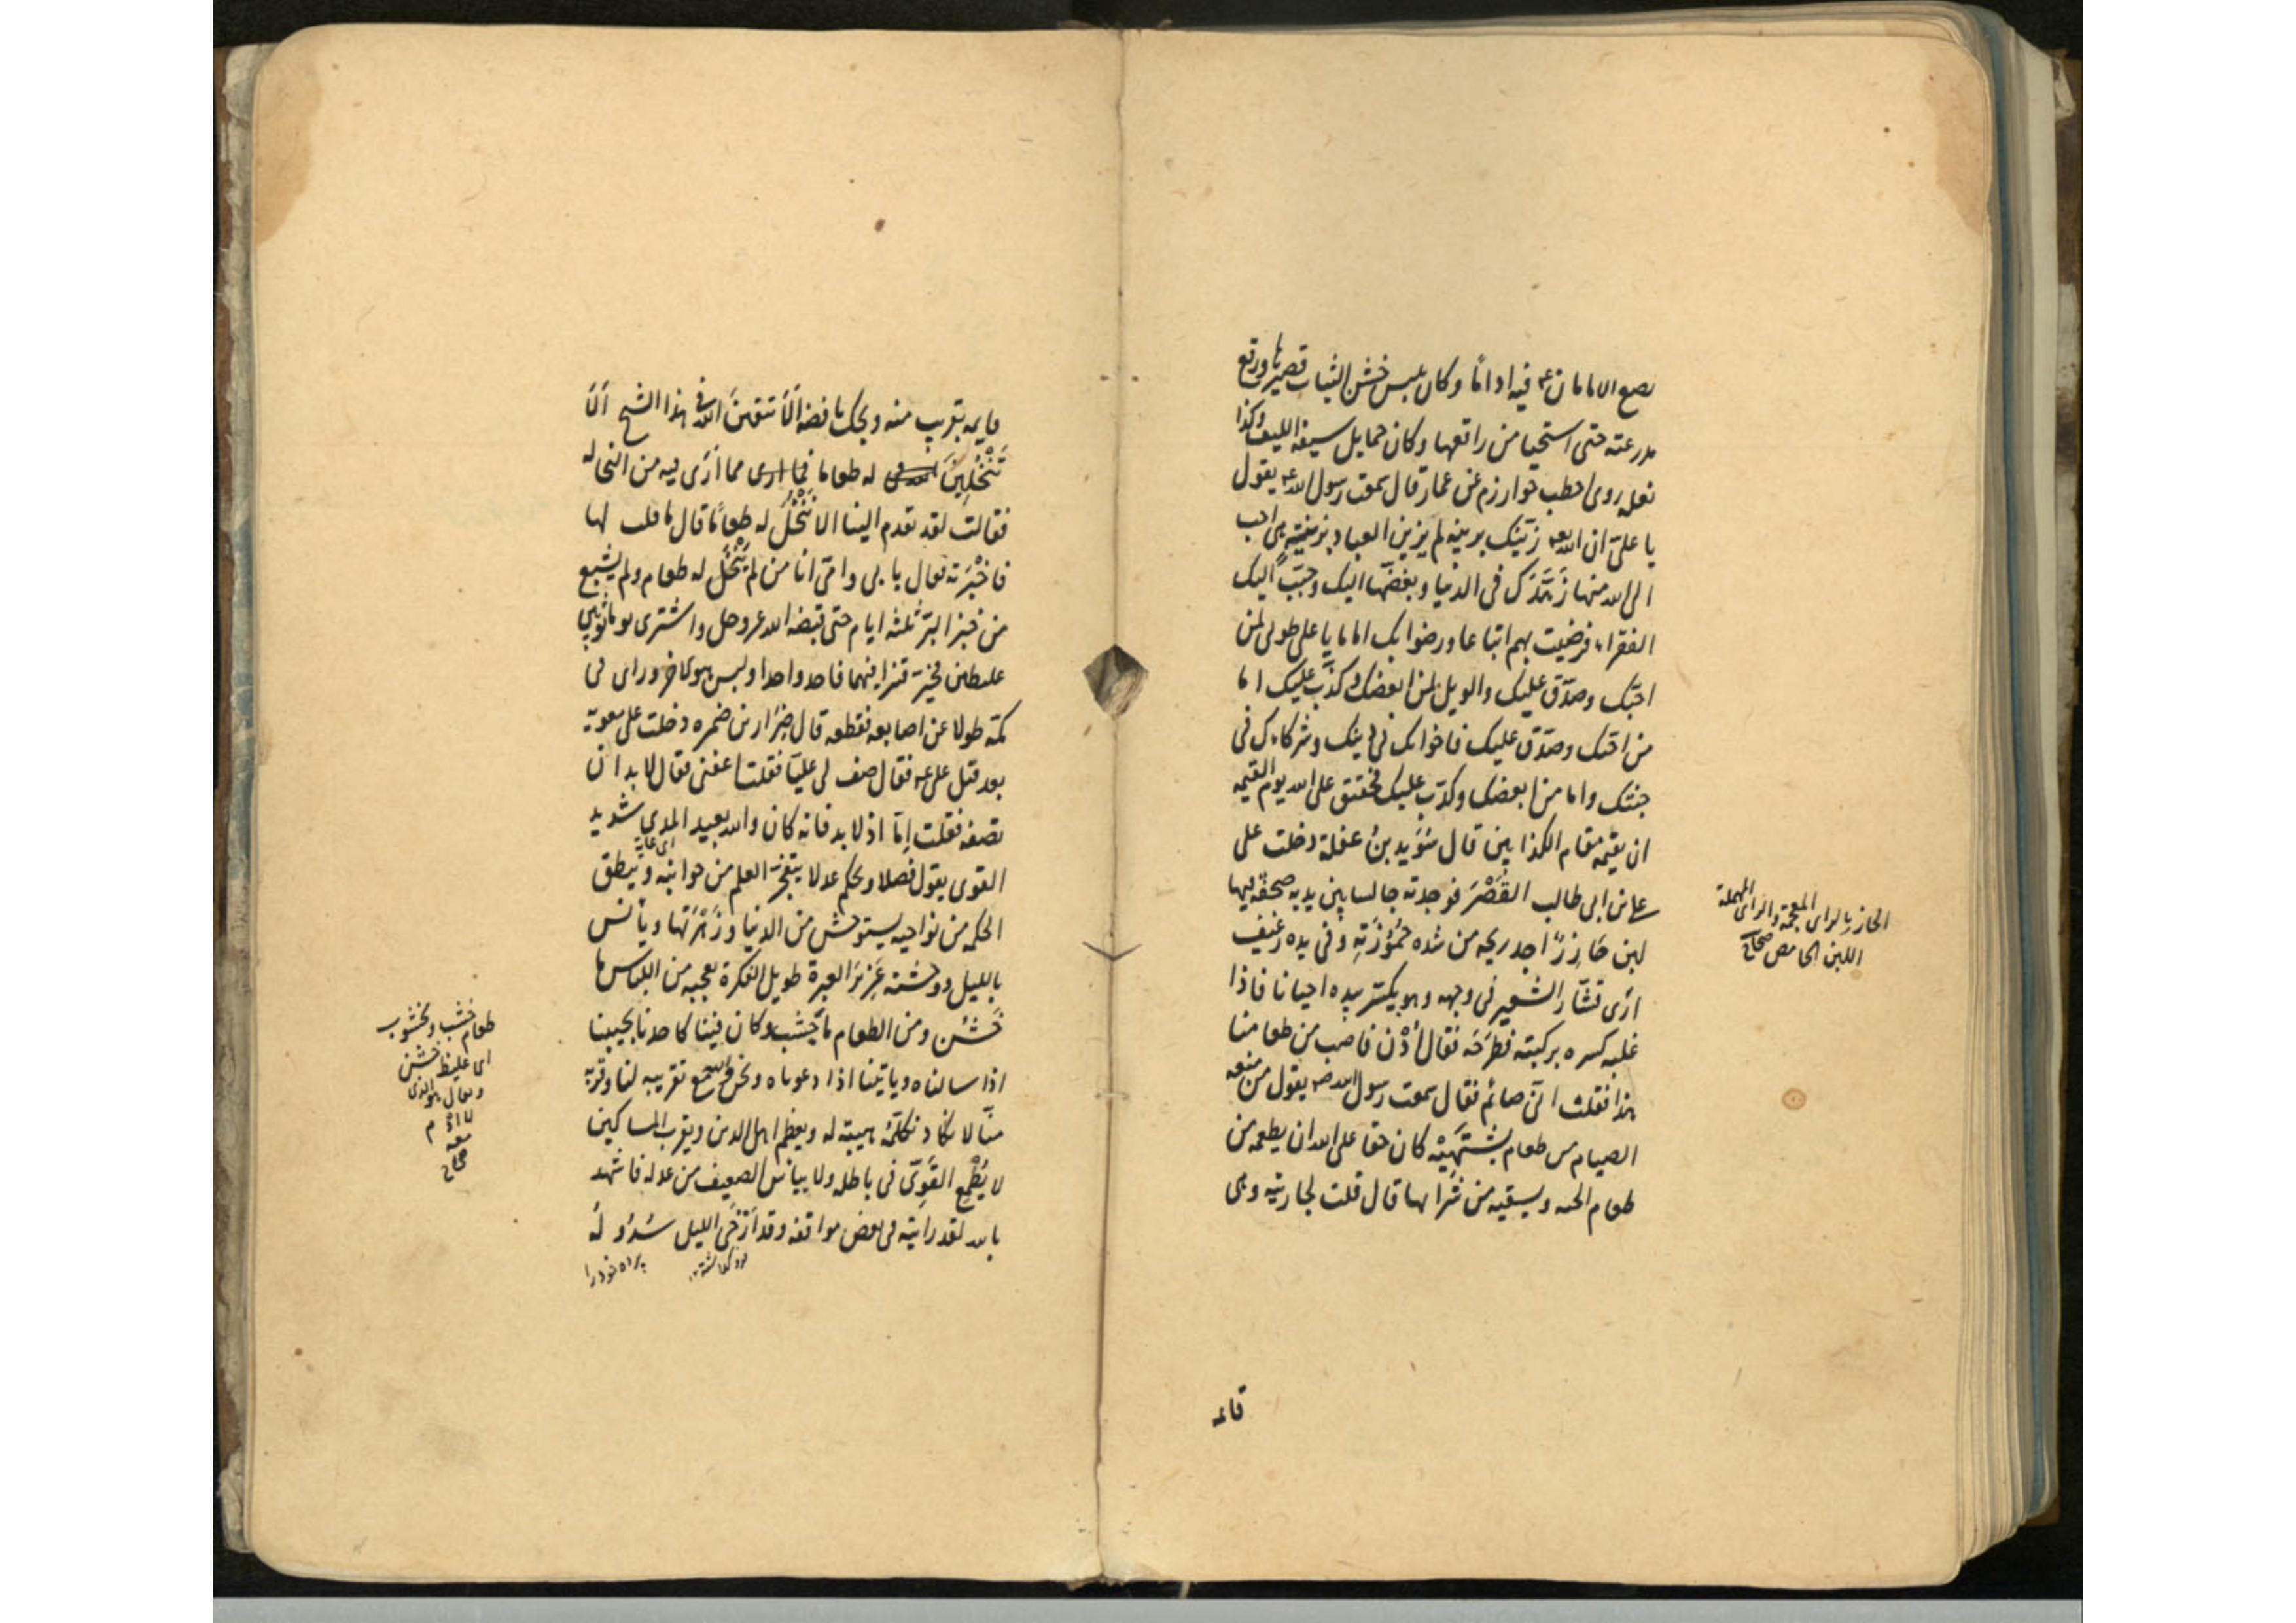 يضع الامامان ع فيه اداما وكان يلبس خشن الثياب قصيرها ورقع
مدرعته حتى استحيا من راقعها وكان حمايل سيفه الليف وكذا
نعله روى اخطب خوارزم عن عمار قال سمعت رسول الله ص يقول
يا على ان الله تع زينك بزينة لم يزين العباد بزينة هى احب
الى الله منها زهدك فى الدنيا وبغضها اليك وحبب اليك
الفقراء فرضيت بهم اتباعا ورضوا بك اماما يا على طوبى لمن
احبك وصدق عليك والويل لمن ابغضك وكذب عليك اما
من احبك وصدق عليك فاخوانك فى دينك وشركاءك فى
جنتك واما من ابغضك وكذب عليك فحقيق على الله يوم القيمه
ان يقيمه مقام الكذابين قال سُوَيد بن غفلة دخلت على
على بن ابى طالب القَصْرَ فوجدته جالسا بين يديه صحفة فيها
لبن حَازِرٌ اجد ريحه من شده حُمُوْزَتِهِ وفى يده رغيف
ارى قشار الشعير فى وجهه وهو يكسر بيده احيانا فاذا
غلبه كسره بركبته فطرَحَه فقال اُدْن فاصب من طعامنا
هذا فقلت انى صائم فقال سمعت رسول الله ص يقول من منعه
الصيام من طعام يَشتَهِيْه كان حقا على الله ان يطعمه من
طعام الجنه ويسقيه من شَرابها قال قلت لجاريته وهى
الحازر بالزاى المعجمة والراى المهملة
اللبن الحامض صحاح
قائمه
قايمه بقريب منه ويحك يا فضه الَا تتقين الله فى هذا الشيخ اَلَا
تَنْخُلِيْنَ له طعاما مما اَرَى فيه من النخاله
فقالت لقد تقدم الينا الا نَنْخُلُ له طعَامًا قال ما قلت لها
فاخْبَرَته فقال بابى وامى انا من لم يُنْخَل له طعام ولم يشبع
من خبز البرّ ثلثه ايام حتى قبضه الله عز وجل واشترى يوما ثوبين
غليظين فخير قنبرا فيهما فاخذ واحدا ولبس هو الاخر وراى فى
كمه طولا عن اصابعه فقطعه قال ضِرَار بن ضمره دخلت على معوية
بعد قتل على ع فقال صف لى عليا فقلت اعفنى فقال لا بد ان
تصفه فقلت اِمّا اذ لا بد فانه كان والله بعيد المدى شديد
اى غاية
القوى يقول فصلا ويحكم عدلا يتفجر العلم من جوانبه وينطق
الحكمه من نواحيه يستوحش من الدنيا وزَهْرَتها ويأنس
بالليل ووحْشَته غَزِيرَ العبرة طويل الفكرة يعجبه من اللباس ما
خَشُن ومن الطعام ما جَشَب وكان فينا كاحدنا يجيبنا
اذا سالناه وياتينا اذا دعوناه ونحن والله مع تقريبه لنا وقربه
منّا لا نكاد نكلّمه هيبته له ويعظم اهل الدين ويقرب المساكين
لا يُطْمِع القَوِىّ فى باطله ولا ييأس الضعيف من عدله فاشهد
بالله لقد رايته فى بعض مواقفه وقد اَرْخَى الليل سُدُوْلَهُ
پرده خود را
طعام جشب ومجشوب
اى غليظ خشن
ويقال هو الذى
لا ادم
معه
صحاح